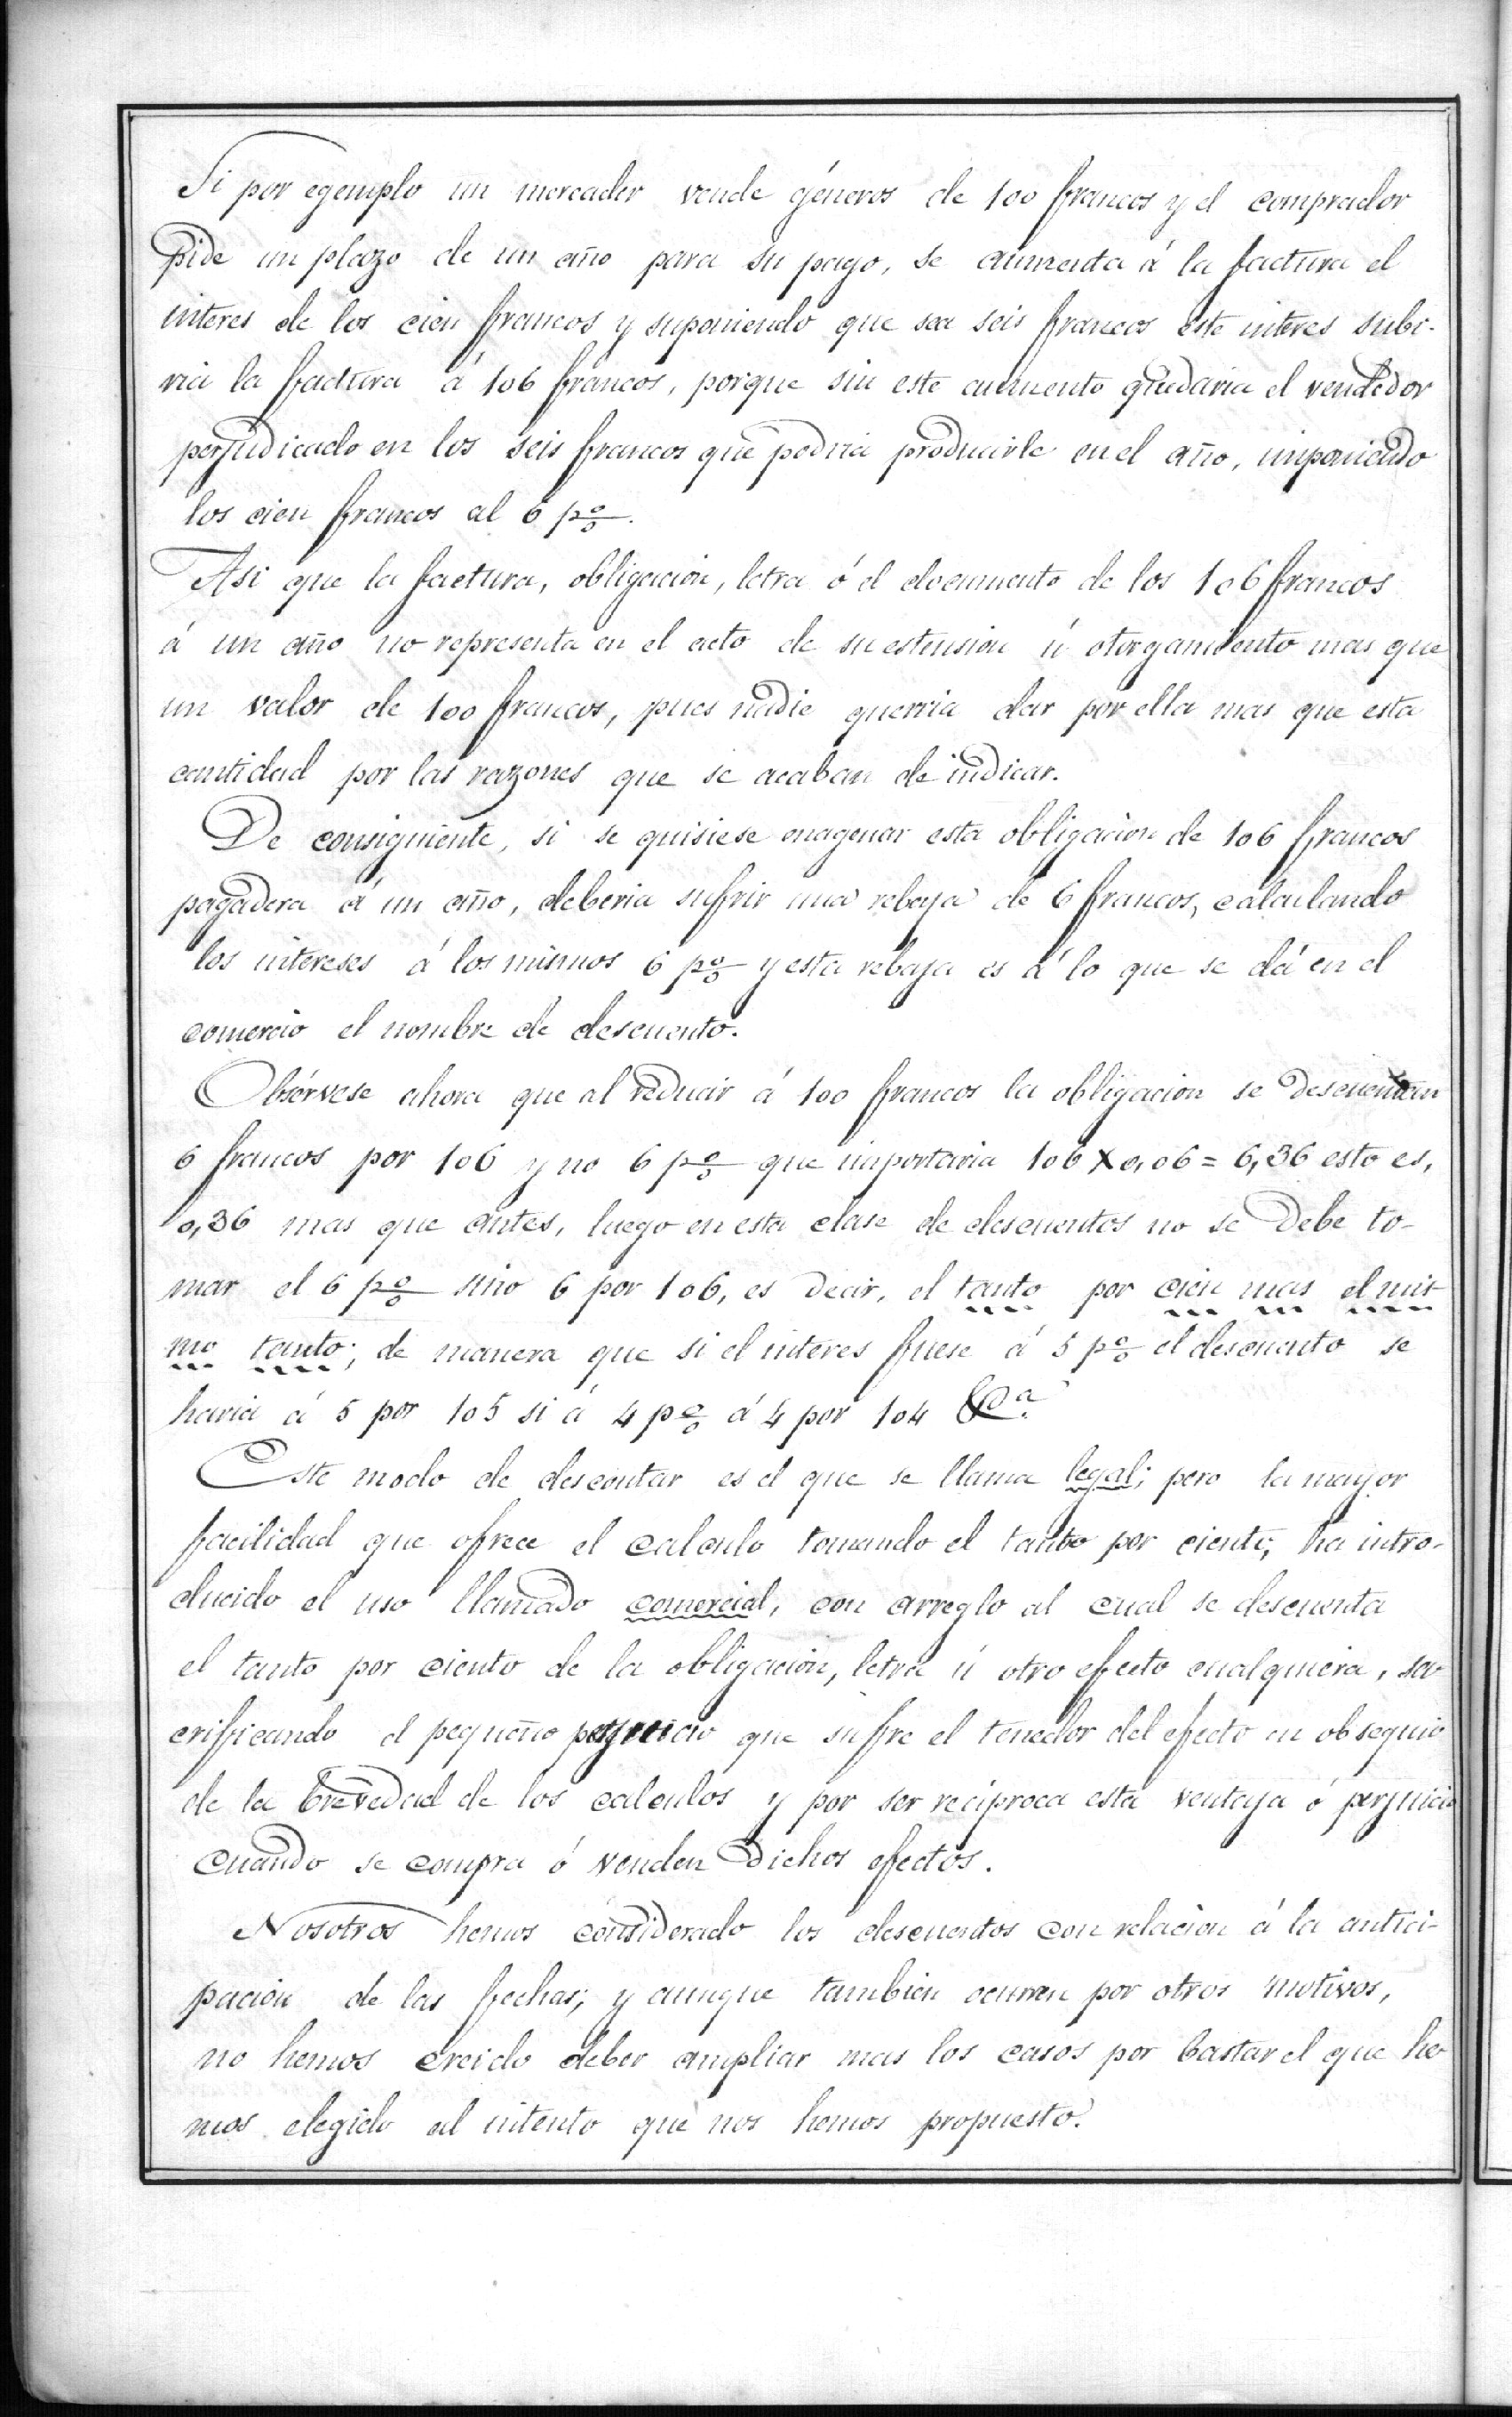 Si por egemplo un mercader vende géneros de 100 francos y el comprador
pide un plazo de un año para su pago, se aumenta á la factura el
interes de los cien francos y suponiendo que sea seis francos este interes subi-
ria la factura á 106 francos, porque sin este aumento quedaria el vendedor
perjudicado en los seis francos que podria producirle en el año, imponiendo
los cien francos al 6 p%.
Asi que la factura, obligacion, letra ó el documento de los 106 francos
á un año no representa en el acto de su estension ú otorgamiento mas que
un valor de 100 francos, pues nadie querria dar por ella mas que esta
cantidad por las razones que se acaban de indicar.
De consiguiente, si se quisiese enagenar esta obligacion de 106 francos
pagadera á un año, deberia sufrir una rebaja de 6 francos, calculando
los intereses á los mismos 6 p% y esta rebaja es á lo que se dá en el
comercio el nombre de descuento.
Obsérvese ahora que al reducir á 100 francos la obligacion se descuentan
6 francos por 106 y no 6 p% que importaria 106 x 0,06 = 6,36 esto es,
0,36 mas que antes, luego en esta clase de descuentos no se debe to-
mar el 6 p% sino 6 por 106, es decir, el tanto por cien mas el mis-
mo tanto; de manera que si el interes fuese á 5 p% el descuento se
haria á 5 por 105 si á 4 p% á 4 por 104 &a.
Este modo de descontar es el que se llama legal; pero la mayor
facilidad que ofrece el calculo tomando el tanto por ciento, ha intro-
ducido el uso llamado comercial, con arreglo al cual se descuenta
el tanto por ciento de la obligacion, letra ú otro efecto cualquiera, sa-
crificando el pequeño perjuicio que sufre el tenedor del efecto en obsequio
de la brevedad de los calculos y por ser reciproca esta ventaja ó perjuicio
cuando se compra ó venden dichos efectos.
Nosotros hemos considerado los descuentos con relacion á la antici-
pacion de las fechas; y aunque tambien ocurren por otros motivos,
no hemos creido deber ampliar mas los casos por bastar el que he-
mos elegido al intento que nos hemos propuesto.